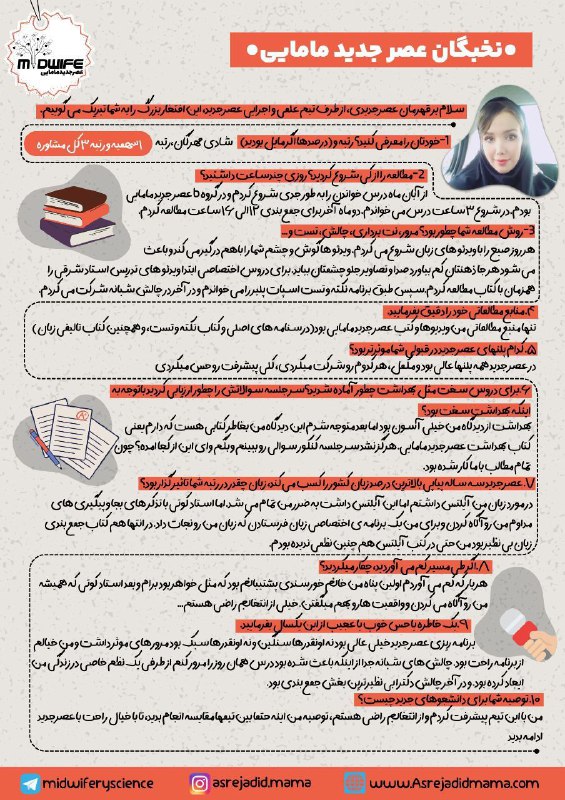 M DWIFE
عصرجدیدمامایی
•نخبگان عصر جدید مامایی•
سلام بر قهرمان عصرجدیدی، از طرف تیم علمی و اجرایی عصرجدید، این افتخار بزرگ را به شما تبریک می گوییم.
1-خودتان را معرفی کنید؟ رتبه و (درصدها اگر مایل بودید) شادی مهرگان، رتبه
۱ سهمیه و رتبه ۳ کل مشاوره
2-مطالعه را از کی شروع کردید؟ روزی چند ساعت داشتید؟
از آبان ماه درس خواندن را به طور جدی شروع کردم و در گروه a عصرجدید مامایی
بودم. در شروع ۳ ساعت درس می خواندم. دو ماه آخر برای جمع بندی ۱۲ الی ۱۶ ساعت مطالعه کردم.
3-روش مطالعه شما چطور بود؟ مرور، نت برداری، چالش، تست و...
هر روز صبح را با ویدئو های زبان شروع می کردم. ویدئو ها گوش و چشم شما را با هم درگیر می کند و باعث
می شود هر جا ذهنتان کم بیاورد صدا و تصاویر جلو چشمتان بیاید. برای دروس اختصاصی ابتدا ویدئو های تدریس استاد شرقی را
همزمان با کتاب مطالعه کردم. سپس طبق برنامه نکته و تست اسپات پلیر را می خواندم و در آخر در چالش شبانه شرکت می کردم.
۴.منابع مطالعاتی خود را دقیق بفرمایید.
تنها منبع مطالعاتی من ویدیوها و کتب عصر جدید مامایی بود(درسنامه های اصلی و کتاب نکته و تست، و همچنین کتاب تالیفی زبان )
۵.کدام پلنهای عصر جدید در قبولی شما موثرتر بود؟
در عصر جدید همه پلنها عالی بود و مکمل، هر کدوم رو شرکت میکردی، کلی پیشرفت رو حس میکردی
۶.برای دروس سخت مثل بهداشت چطور آماده شدید؟ سر جلسه سوالاتش را چطور ارزیابی کردید با توجه به
اینکه بهداشت سخت بود؟
بهداشت از دیدگاه من خیلی آسون بود اما بعد متوجه شدم این دیدگاه من بخاطر کتابی هست که دارم یعنی
کتاب بهداشت عصر جدید مامایی. هرگز نشد سر جلسه کنکور سوالی رو ببینم و بگم وای این از کجا آمده؟ چون
تمام مطالب با ما کار شده بود.
۷.عصرجدید سه ساله پیاپی بالاترین درصد زبان کشور را کسب می کند، زبان چقدر در رتبه شما تاثیر گذار بود؟
در مورد زبان من آیلتس داشتم اما این آیلتس داشت به ضرر من تمام می شد. اما استاد کوتی با تذکر های بجا و پیگیری های
مداوم من رو آگاه کردن و برای من یک برنامه ی اختصاصی زبان فرستادن که زبان من رو نجات داد. در انتها هم کتاب جمع بندی
زبان بی نظیر بود من حتی در کتب آیلتس هم چنین نظمی ندیده بودم.
۸.اگر طی مسیر کم می آوردید، چکار میکردید؟
هر بار که کم می آوردم اولین پناه من خانم خورسندی پشتیبانم بود که مثل خواهر بود برام و بعد استاد کوتی که همیشه
من رو آگاه می کردن و واقعیت ها رو بهم میگفتن. خیلی از انتخابم راضی هستم...
۹.یک خاطره یا حس خوب یا عجیب از این یکسال بفرمایید.
برنامه ریزی عصر جدید خیلی عالی بود نه اونقدر ها سنگین و نه اونقدر ها سبک بود مرور های موثر داشت و من خیالم
از برنامه راحت بود. چالش های شبانه جدا از اینکه باعث شده بود درس همان روز را مرور کنم از طرفی یک نظم خاصی در زندگی من
ایجاد کرده بود. و در آخر چالش دکترایی نظیرترین بخش جمع بندی بود.
۱۰.توصیه شما برای دانشجوهای جدید چیست؟
من با این تیم پیشرفت کردم و از انتخابم راضی هستم، توصیه من اینه حتما بین تیمها مقایسه انجام بدید، تا با خیال راحت با عصر جدید
ادامه بدید
midwiferyscience
asrejadid.mama
www.Asrejadidmama.com